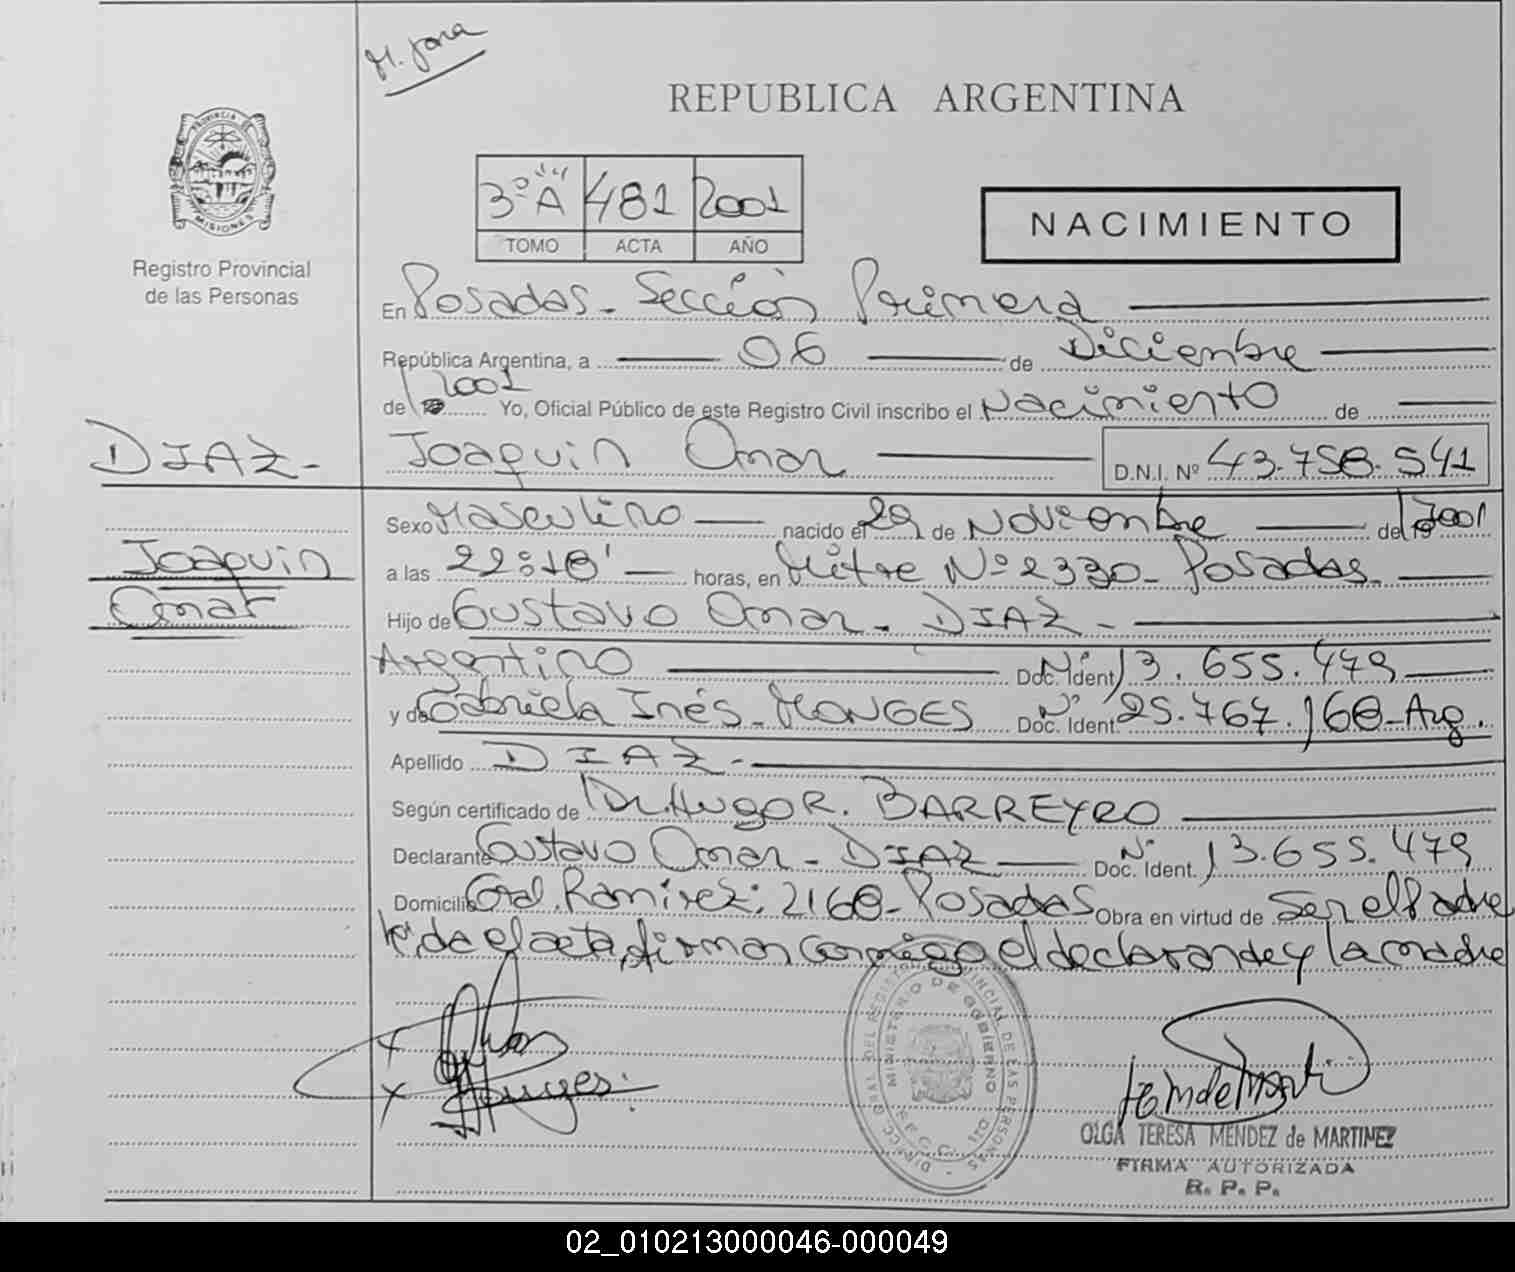 M. Jara
REPUBLICA ARGENTINA
PROVINCIA DE
MISIONES
Registro Provincial
de las Personas
3º "A" 481 2001
TOMO ACTA AÑO
NACIMIENTO
En Posadas - Sección Primera
República Argentina, a 06 de Diciembre
de 2001 Yo, Oficial Público de este Registro Civil inscribo el Nacimiento de
DIAZ - Joaquin Omar D.N.I. Nº 43.758.541
Sexo Masculino nacido el 29 de Noviembre de 2001
Joaquin a las 22:10' horas, en Mitre Nº 2330 - Posadas
Omar Hijo de Gustavo Omar - DIAZ -
Argentino Doc. Ident. Nº 13.655.479
y de Gabriela Inés - MONGES Doc. Ident. Nº 25.767.160 - Arg.
Apellido DIAZ -
Según certificado de Dr. Hugo R. BARREYRO
Declarante Gustavo Omar - DIAZ Doc. Ident. Nº 13.655.479
Domicilio Gral. Ramirez: 2160 - Posadas Obra en virtud de Ser el Padre
de el acta, firman conmigo el declarante y la madre
OLGA TERESA MENDEZ de MARTINEZ
FIRMA AUTORIZADA
R. P. P.
02_010213000046-000049